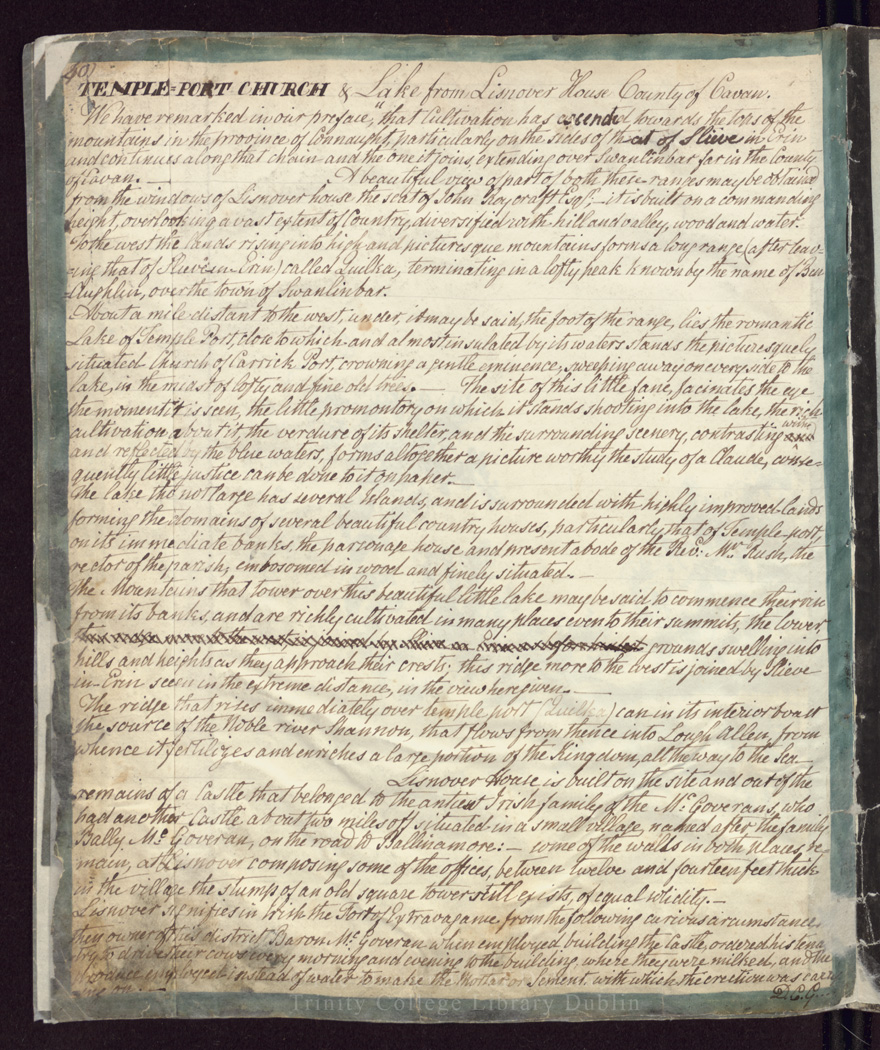 40)
TEMPLE=PORT CHURCH & Lake from Lisnover House County of Cavan.
We have remarked in our preface, "that Cultivation has ascended towards the tops of the
mountains in the province of Connaught, particularly on the sides of that of Slieve in Erin
and continues along that chain and the one it joins, extending over Swanlinbar far in the County
of Cavan. — A beautiful view of part of both these ranges may be obtained
from the windows of Lisnover house the seat of John Roycraft Esqr. — it is built on a commanding
height, overlooking a vast extent of Country, diversified with hill and valley, wood and water.
To the west the lands rising into high and picturesque mountains forms a long range (after leav-
ing that of Slieve in Erin) called Quilka, terminating in a lofty peak known by the name of Ben
Aughlin, over the town of Swanlinbar.
About a mile distant to the west, under, it may be said, the foot of the range, lies the romantic
Lake of Temple Port, close to which and almost insulated by its waters stands the picturesquely
situated Church of Carrick Port, crowning a gentle eminence, sweeping away on every side to the
lake, in the midst of lofty and fine old trees. — The site of this little fane, facinates the eye
the moment it is seen, the little promontory on which it stands shooting into the lake, the rich
cultivation about it, the verdure of its shelter, and the surrounding scenery, contrasting with
and reflected by the blue waters, forms altogether a picture worthy the study of a Claude, conse=
quently little justice can be done to it on paper. —
The lake tho not large has several Islands, and is surrounded with highly improved lands
forming the domains of several beautiful country houses, particularly that of Temple-port,
on its immediate banks, the parsonage house and present abode of the Rev: Mr. Rush, the
rector of the parish, embosomed in wood and finely situated. —
The Mountains that tower over this beautiful little lake may be said to commence their rise
from its banks, and are richly cultivated in many places even to their summits, the lower
grounds swelling into
hills and heights as they approach their crests; this ridge more to the west is joined by Slieve
in Erin seen in the extreme distance, in the view here given. —
The ridge that rises immediately over temple port (Quilka) can in its interior boast
the source of the Noble river Shannon, that flows from thence into Lough Allen, from
whence it fertilizes and enriches a large portion of the Kingdom, all the way to the Sea
Lisnover House is built on the site and out of the
remains of a Castle that belonged to the antient Irish family of the Mc Goverans, who
had another Castle about two miles off situated in a small village, named after the family
Bally Mc Goveran, on the road to Ballinamore: — some of the walls in both places, re-
main, at Lisnover composing some of the offices, between twelve and fourteen feet thick
in the village the stump of an old square tower still exists, of equal solidity. —
Lisnover signifies in Irish the Fort of Extravagance from the following curious circumstance,
the owner of this district Baron Mc Goveran when employed building the Castle, ordered his tenan
try to drive their cows every morning and evening to the building, where they were milked, and the
produce employed instead of water to make the Mortar or Sement, with which the erection was carry
ing on. —
D. C. G.
Trinity College Library Dublin